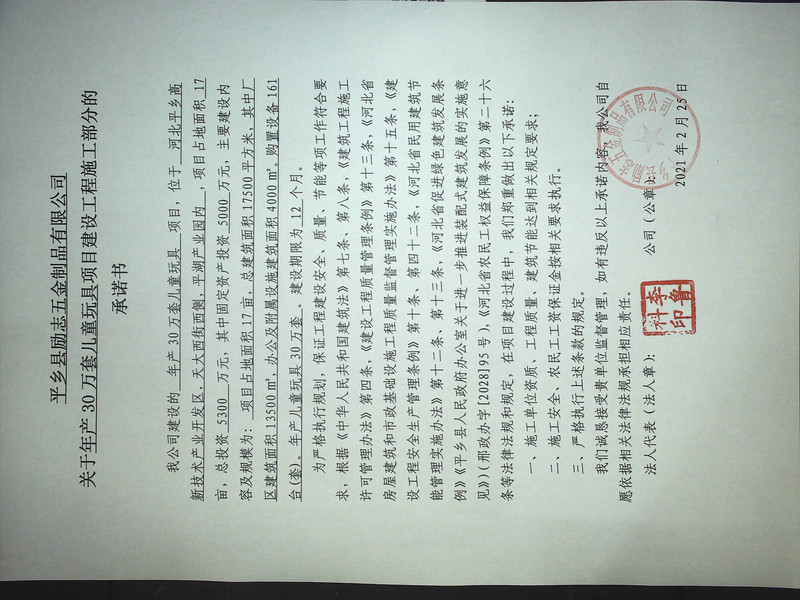 平乡县励志五金制品有限公司
关于年产 30 万套儿童玩具项目建设工程施工部分的
承诺书
我公司建设的 年产 30 万套儿童玩具 项目，位于 河北平乡高
新技术产业开发区，天大西街西侧、平湖产业园内 ，项目占地面积 17
亩，总投资 5300 万元，其中固定资产投资 5000 万元，主要建设内
容及规模为： 项目占地面积 17 亩，总建筑面积 17500 平方米，其中厂
区建筑面积 13500 ㎡，办公及附属设施建筑面积 4000 ㎡，购置设备 161
台(套)。年产儿童玩具 30 万套 。建设期限为 12 个月。
为严格执行规划，保证工程建设安全、质量、节能等项工作符合要
求，根据《中华人民共和国建筑法》第七条、第八条，《建筑工程施工
许可管理办法》第四条，《建设工程质量管理条例》第十三条，《河北省
房屋建筑和市政基础设施工程质量监督管理实施办法》第十五条，《建
设工程安全生产管理条例》第十条、第四十二条，《河北省民用建筑节
能管理实施办法》第十二条、第十三条，《河北省促进绿色建筑发展条
例》《平乡县人民政府办公室关于进一步推进装配式建筑发展的实施意
见》》（邢政办字 [2028] 95 号），《河北省农民工权益保障条例》第二十六
条等法律法规和规定，在项目建设过程中，我们郑重做出以下承诺：
一、施工单位资质、工程质量、建筑节能达到相关规定要求；
二、施工安全、农民工工资保证金按相关要求执行。
三、严格执行上述条款的规定。
我们诚恳接受贵单位监督管理，如有违反以上承诺内容，我公司自
愿依据相关法律法规承担相应责任。
法人代表（法人章）：
李鲁科印
公司（公章）：
平乡县励志五金制品有限公司
2021 年 2 月 25 日